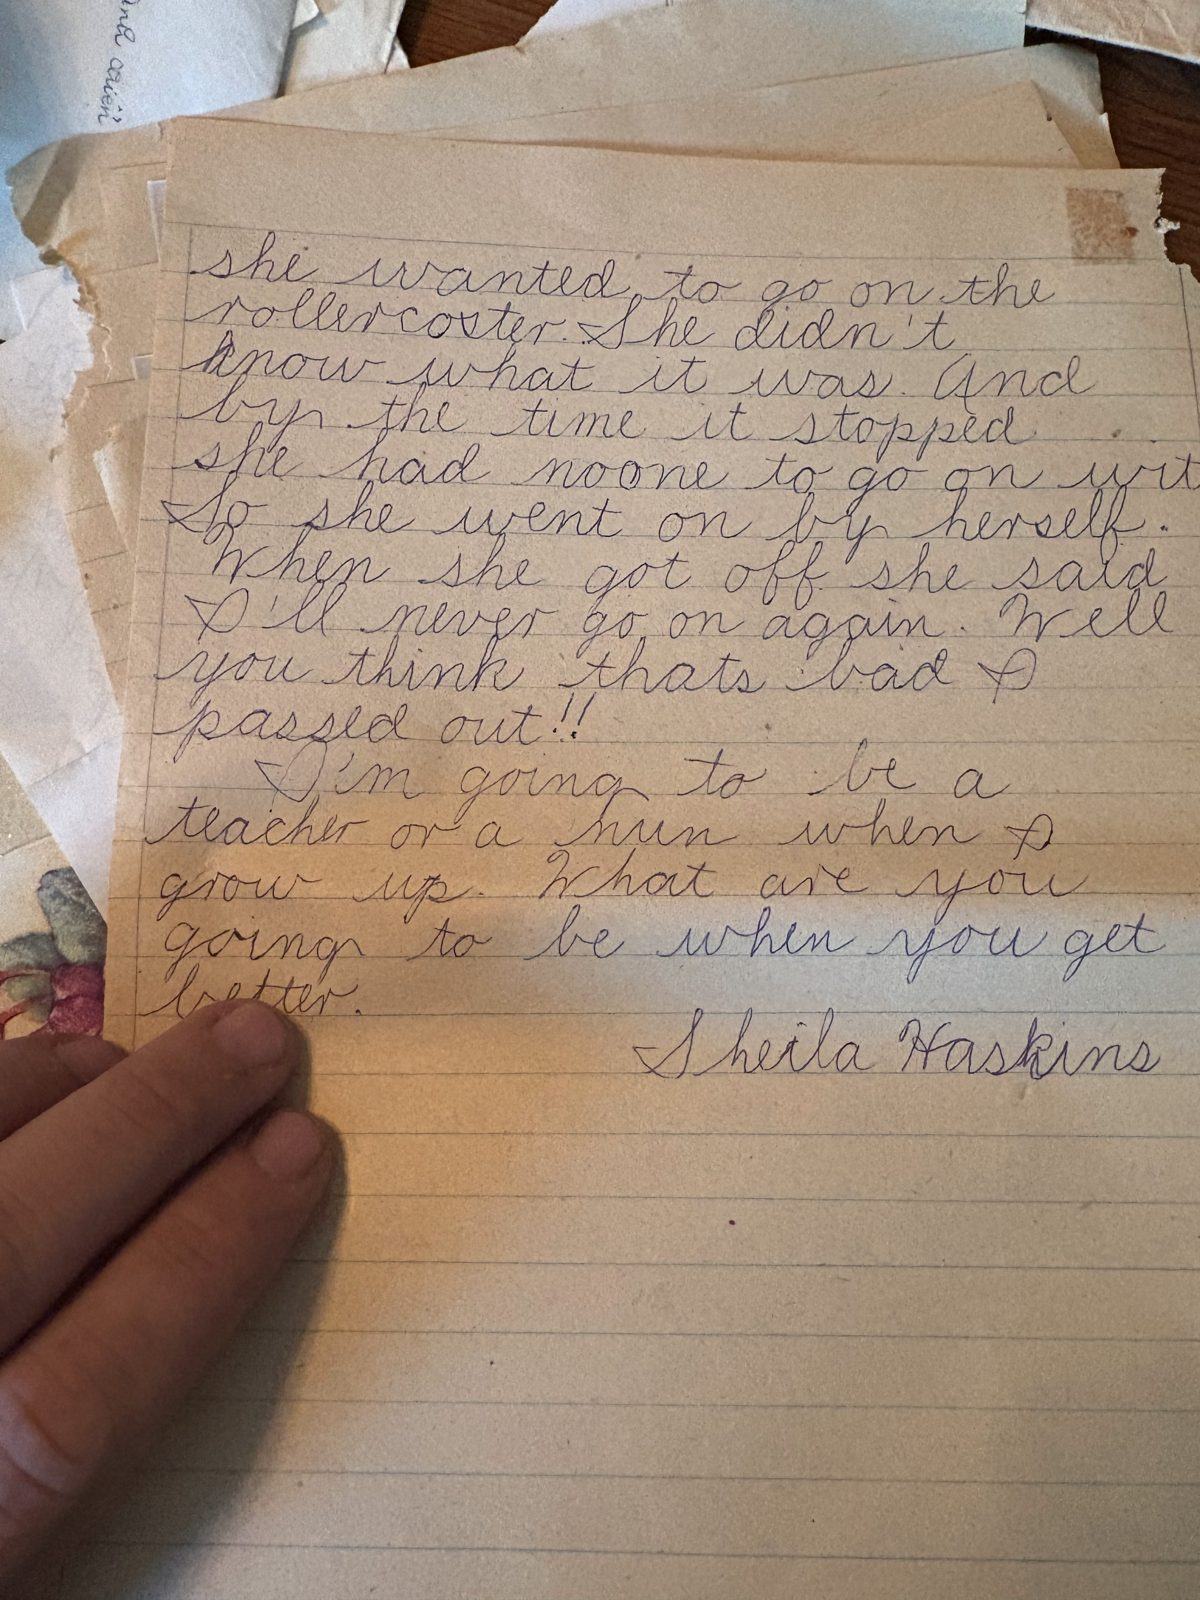 and
she wanted to go on the
rollercoster. She didn't
know what it was. And
by the time it stopped
she had noone to go on wit
So she went on by herself.
When she got off she said
I'll never go on again. Well
you think thats bad I
passed out!!
I'm going to be a
teacher or a nun when I
grow up. What are you
going to be when you get
better.
Sheila Haskins